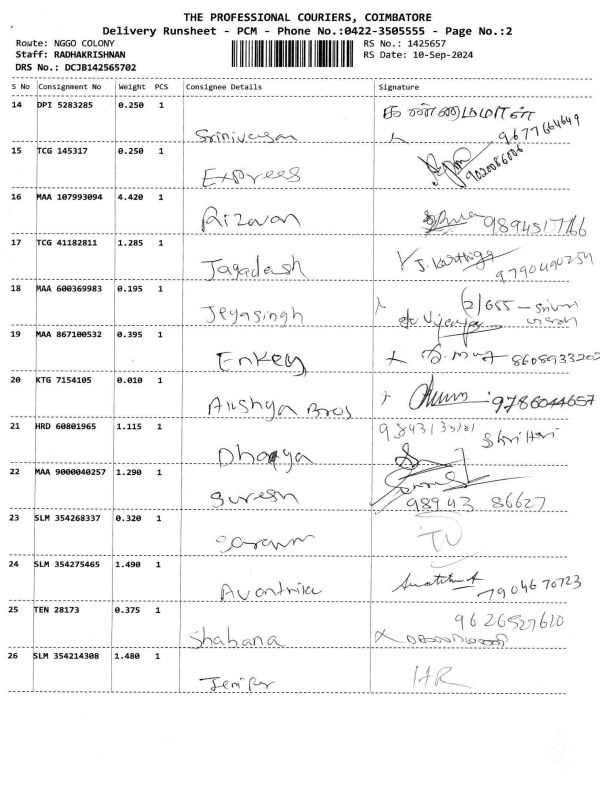 THE PROFESSIONAL COURIERS, COIMBATORE
Delivery Runsheet - PCM - Phone No.:0422-3505555 - Page No.:2
Route: NGGO COLONY
RS No.: 1425657
Staff: RADHAKRISHNAN
RS Date: 10-Sep-2024
DRS No.: DCJB142565702
S No Consignment No Weight PCS Consignee Details Signature
14 DPI 5283285 0.250 1
Srinivasan
9677664649
15 TCG 145317 0.250 1
Express
9020086006
16 MAA 107993094 4.420 1
Rizwan
17 TCG 41182811 1.285 1
Jagadash J. Karthiga
9790490254
18 MAA 600369983 0.195 1
Jeyasingh
19 MAA 867100532 0.395 1
Enkey 8608933202
20 KTG 7154105 0.010 1
Anshya Bros 9786044657
21 HRD 60801965 1.115 1
Dhanya Shri Hari
22 MAA 9000040257 1.290 1
Suresh 98943 86627
23 SLM 354268337 0.320 1
Saravn
24 SLM 354275465 1.490 1
Avantrika 7904670723
25 TEN 28173 0.375 1
9626527610
Shabana
26 SLM 354214308 1.480 1
Jenifer